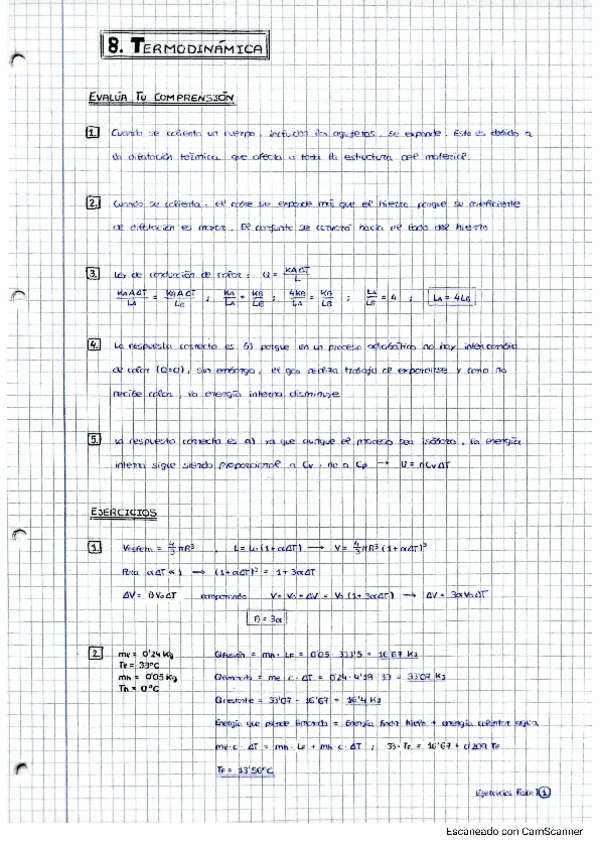 8. TERMODINÁMICA
EVALÚA TU COMPRENSIÓN
1. Cuando se calienta un cuerpo, incluidos los agujeros, se expande. Esto es debido a
la dilatación térmica que afecta a toda la estructura del material.
2. Cuando se calienta, el cobre se expande más que el hierro porque su coeficiente
de dilatación es mayor. El conjunto se curvará hacia el lado del hierro
3. Ley de conducción de calor: Q = KAΔT/L
KAAΔT/LA = KBAΔT/LB ; KA/LA = KB/LB ; 4KB/LA = KB/LB ; LA/LB = 4 ; LA = 4LB
4. La respuesta correcta es b) porque en un proceso adiabático no hay intercambio
de calor (Q=0), sin embargo, el gas realiza trabajo al expandirse y como no
recibe calor, la energía interna disminuye
5. La respuesta correcta es a) ya que aunque el proceso sea isóbaro, la energía
interna sigue siendo proporcional a Cv, no a Cp → U = nCvΔT
EJERCICIOS
1. Vesfera = 4/3 πR³ , L = L0 (1+αΔT) → V = 4/3 πR³ (1+αΔT)³
Para αΔT << 1 → (1+αΔT)³ = 1 + 3αΔT
ΔV = βV0ΔT comparando V = V0 + ΔV = V0 (1+3αΔT) → ΔV = 3αV0ΔT
β = 3α
2. me = 0'24 Kg Qfusión = mh · LF = 0'05 · 333'5 = 16'67 KJ
Te = 33ºC
mh = 0'05 Kg = me · c · ΔT = 0'24 · 4'18 · 33 = 33'07 KJ
Th = 0ºC
Qrestante = 33'07 - 16'67 = 16'4 KJ
Energía que pierde limonada = Energía funde hielo + energía calentar agua
me · c · ΔT = mh · LF + mh · c · ΔT ; 33 - TF = 16'67 + TF
TF = 13'50ºC
Ejercicios 1
Escaneado con CamScanner